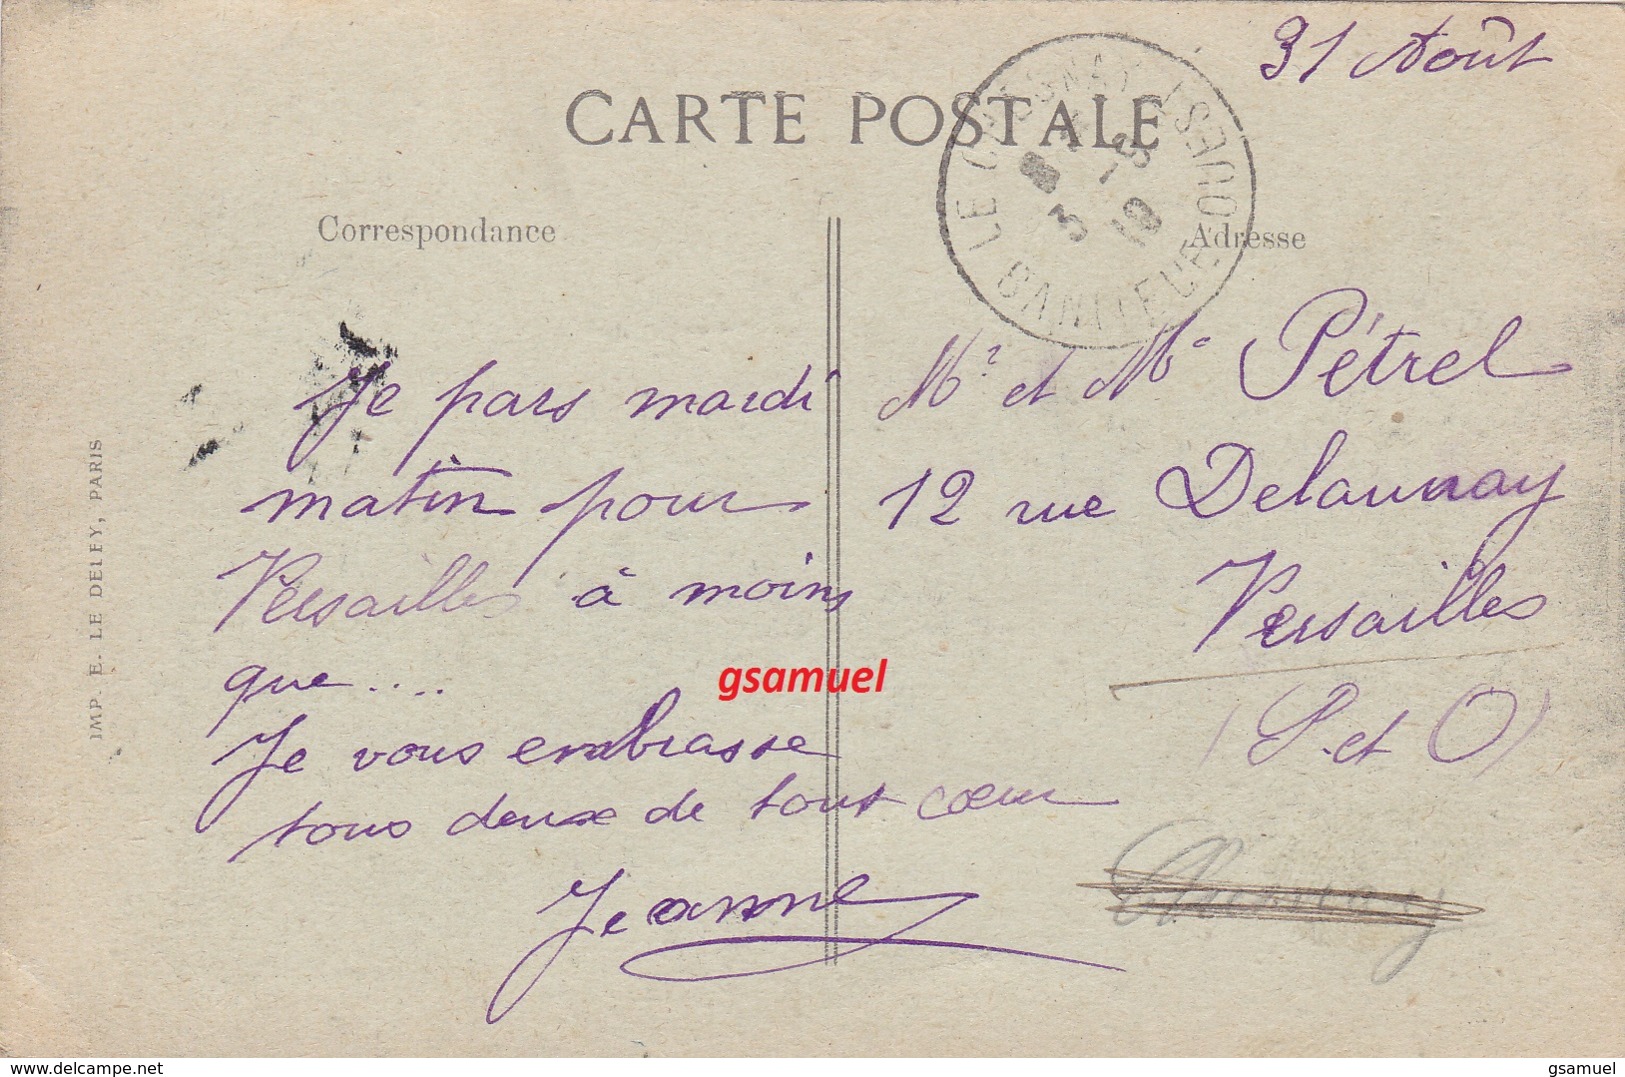 31 Août
CARTE POSTALE
LE CHESNAY (S.-ET-OUEST)
BANLIEUE
3 -5
19
Correspondance
Adresse
Je pars mardi
matin pour
Versailles à moins
que....
Je vous embrasse
tous deux de tout cœur
Jeanne
Mr et Me Pétrel
12 rue Delaunay
Versailles
(S. et O)
Chesnay
IMP. E. LE DELEY, PARIS
gsamuel
delcampe.net
gsamuel